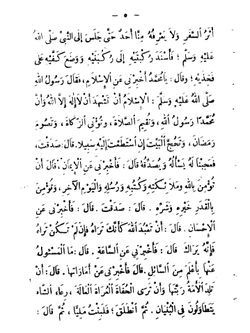 - ٥ -
أَثَرُ السَّفَرِ وَلَا يَعْرِفُهُ مِنَّا أَحَدٌ حَتَّى جَلَسَ إِلَى النَّبِيِّ صَلَّى اللهُ
عَلَيْهِ وَسَلَّمَ؛ فَأَسْنَدَ رُكْبَتَيْهِ إِلَى رُكْبَتَيْهِ وَوَضَعَ كَفَّيْهِ عَلَى
فَخِذَيْهِ؛ وَقَالَ: يَا مُحَمَّدُ أَخْبِرْنِي عَنِ الْإِسْلَامِ، فَقَالَ رَسُولُ اللهِ
صَلَّى اللهُ عَلَيْهِ وَسَلَّمَ: الْإِسْلَامُ أَنْ تَشْهَدَ أَنْ لَا إِلٰهَ إِلَّا اللهُ وَأَنَّ
مُحَمَّدًا رَسُولُ اللهِ، وَتُقِيمَ الصَّلَاةَ، وَتُؤْتِيَ الزَّكَاةَ، وَتَصُومَ
رَمَضَانَ، وَتَحُجَّ الْبَيْتَ إِنِ اسْتَطَعْتَ إِلَيْهِ سَبِيلًا. قَالَ: صَدَقْتَ.
فَعَجِبْنَا لَهُ يَسْأَلُهُ وَيُصَدِّقُهُ قَالَ: فَأَخْبِرْنِي عَنِ الْإِيمَانِ. قَالَ: أَنْ
تُؤْمِنَ بِاللهِ وَمَلَائِكَتِهِ وَكُتُبِهِ وَرُسُلِهِ وَالْيَوْمِ الْآخِرِ، وَتُؤْمِنَ
بِالْقَدَرِ خَيْرِهِ وَشَرِّهِ. قَالَ: صَدَقْتَ. قَالَ: فَأَخْبِرْنِي عَنِ
الْإِحْسَانِ. قَالَ: أَنْ تَعْبُدَ اللهَ كَأَنَّكَ تَرَاهُ فَإِنْ لَمْ تَكُنْ تَرَاهُ
فَإِنَّهُ يَرَاكَ. قَالَ: فَأَخْبِرْنِي عَنِ السَّاعَةِ. قَالَ: مَا الْمَسْئُولُ
عَنْهَا بِأَعْلَمَ مِنَ السَّائِلِ. قَالَ: فَأَخْبِرْنِي عَنْ أَمَارَاتِهَا. قَالَ: أَنْ
تَلِدَ الْأَمَةُ رَبَّتَهَا وَأَنْ تَرَى الْحُفَاةَ الْعُرَاةَ الْعَالَةَ، رِعَاءَ الشَّاءِ
يَتَطَاوَلُونَ فِي الْبُنْيَانِ. ثُمَّ انْطَلَقَ؛ فَلَبِثْتُ مَلِيًّا، ثُمَّ قَالَ: